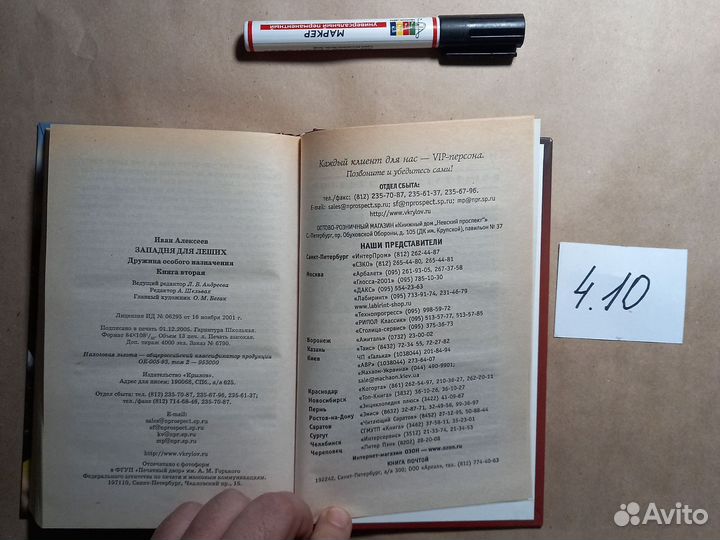 МАРКЕР
универсальный перманентный
Иван Алексеев
ЗАПАДНЯ ДЛЯ ЛЕШИХ
Дружина особого назначения
Книга вторая
Ведущий редактор Л. В. Андреева
Редактор А. Шельвах
Главный художник О. М. Беган
Лицензия ИД № 06295 от 16 ноября 2001 г.
Подписано в печать 01.12.2005. Гарнитура Школьная.
Формат 84×108 1/32. Объем 13 печ. л. Печать высокая.
Доп. тираж 4000 экз. Заказ № 6790.
Налоговая льгота — общероссийский классификатор продукции
ОК-005-93, том 2 — 953000
Издательство «Крылов».
Адрес для писем: 190068, СПб., а/я 625.
Отдел сбыта: тел. (812) 235-70-87, 235-67-96, 235-61-37;
тел./факс (812) 714-68-46, 235-70-87.
E-mail:
sales@nprospect.sp.ru
sf@nprospect.sp.ru
kv@npr.sp.ru
mp@npr.sp.ru
http://www.vkrylov.ru
Отпечатано с фотоформ
в ФГУП «Печатный двор» им. А. М. Горького
Федерального агентства по печати и массовым коммуникациям.
197110, Санкт-Петербург, Чкаловский пр., 15.
Каждый клиент для нас — VIP-персона.
Позвоните и убедитесь сами!
ОТДЕЛ СБЫТА:
тел./факс: (812) 235-70-87, 235-61-37, 235-67-96.
E-mail: sales@nprospect.sp.ru; sf@nprospect.sp.ru; mp@npr.sp.ru
http://www.vkrylov.ru
ОПТОВО-РОЗНИЧНЫЙ МАГАЗИН «Книжный дом „Невский проспект“»
С.-Петербург, пр. Обуховской Обороны, д. 105 (ДК им. Крупской), павильон № 37
НАШИ ПРЕДСТАВИТЕЛИ
Санкт-Петербург «ИнтерПром» (812) 262-44-87
«СЗКО» (812) 265-44-80, 265-44-81
Москва «Арбалет» (095) 261-93-05, 267-37-58
«Глосса-2001» (095) 951-05-50
«ДАКС» (095) 554-23-63
«Лабиринт» (095) 733-91-74, 231-46-79
www.labirint-shop.ru
«Технопрогресс» (095) 998-59-72
«РИПОЛ Классик» (095) 513-57-77, 513-57-85
«Столица-сервис» (095) 375-36-73
Воронеж «Амиталь» (0732) 23-00-02
Казань «Таис» (8432) 72-34-55, 72-27-82
Киев ЧП «Галька» (1038044) 201-84-94
«АВР» (1038044) 273-64-07
«Махаон-Украина» (044) 490-9901;
sale@machaon.kiev.ua
Краснодар «Когорта» (861) 262-54-97, 210-36-27, 262-20-11
Новосибирск «Топ-Книга» (3832) 36-10-26, 36-10-27
Пермь «Энциклопедия плюс» (3422) 41-09-67
Ростов-на-Дону «Эмис» (8632) 32-87-71, 32-49-58, 99-36-97
Саратов «Читающий Саратов» (8452) 17-12-95, 50-88-44
Сургут СГМУТП «Книга» (3462) 37-58-11, 35-23-01
Челябинск «Интерсервис» (3512) 21-33-74, 21-34-53
Череповец «Питер Пэн» (8202) 28-20-08
Интернет-магазин ОЗОН — www.ozon.ru
КНИГА ПОЧТОЙ
192242, Санкт-Петербург, а/я 300; ООО «Ареал», тел. (812) 774-40-63
4.10
Avito